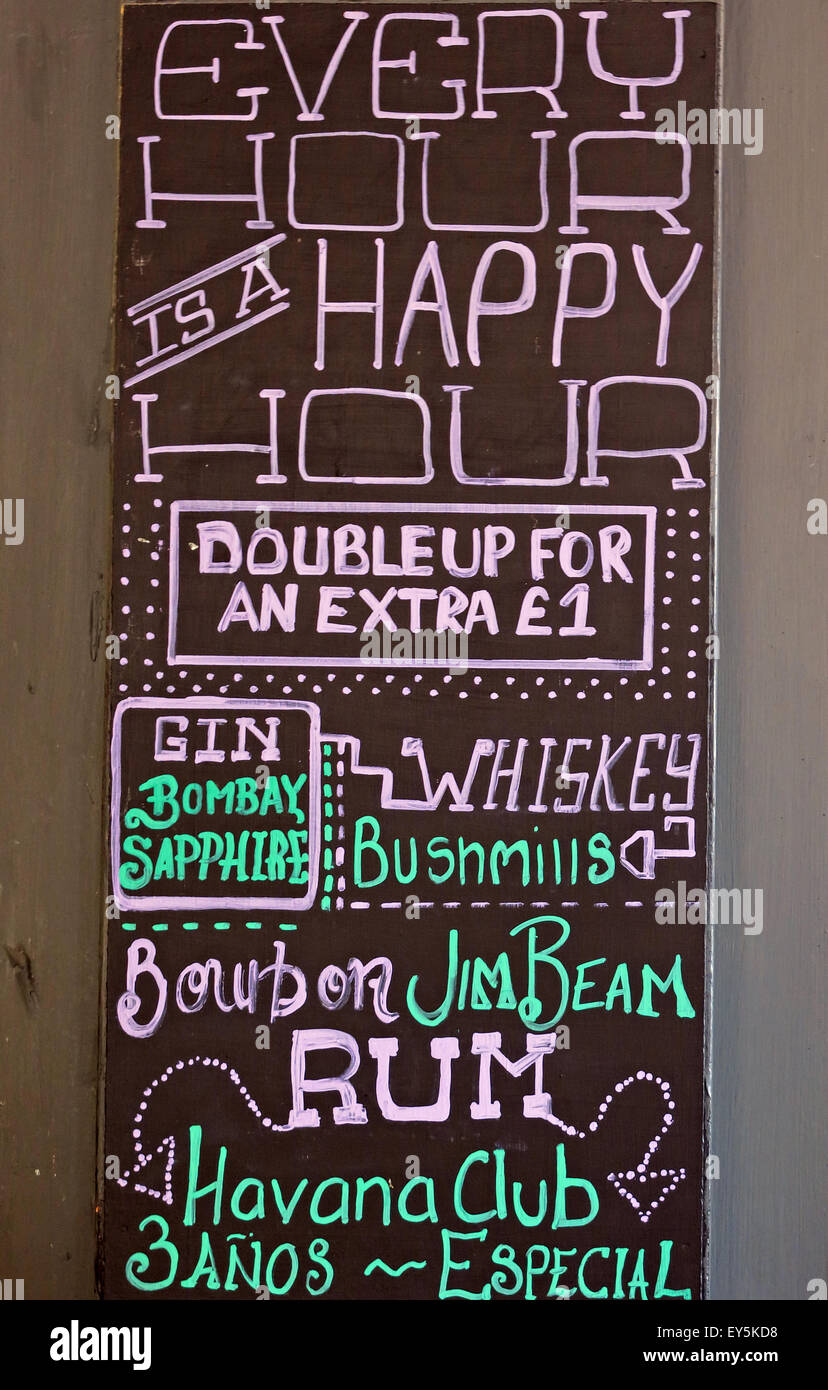 EVERY
HOUR
IS A HAPPY
HOUR
DOUBLE UP FOR
AN EXTRA £1
GIN
BOMBAY
SAPPHIRE
WHISKEY
Bushmills
Bourbon JIM BEAM
RUM
Havana Club
3 AÑOS ~ ESPECIAL
alamy stock photo
EY5KD8
www.alamy.com